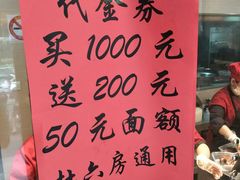 代金券
买1000元
送200元
50元面额
廿六房通用